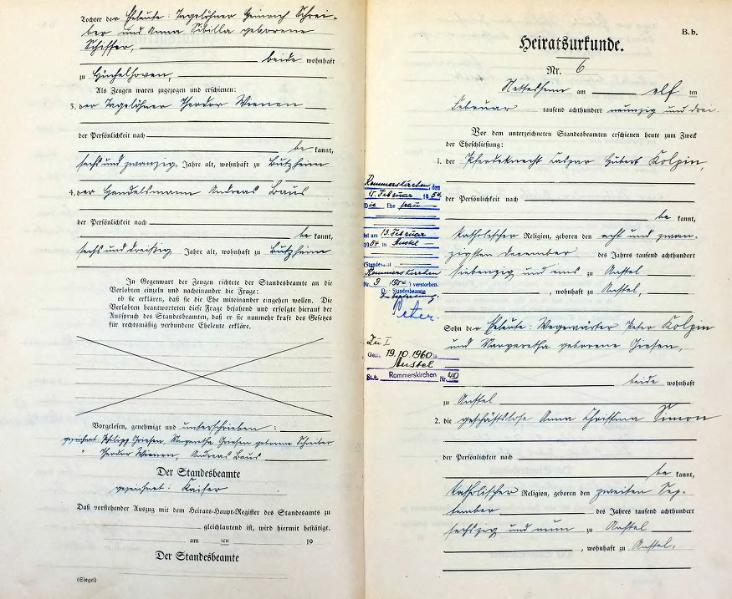 Tochter der Eheleute: Tagelöhner Heinrich Schrei-
ber und Anna Sibilla geborene
Schiffer,
beide wohnhaft
zu Hüchelhoven,
Als Zeugen waren zugezogen und erschienen:
3. der Tagelöhner Theodor Wienen
der Persönlichkeit nach
be kannt,
sechs und zwanzig Jahre alt, wohnhaft zu Bützheim
4. der Handelsmann Andreas Baus
der Persönlichkeit nach
be kannt,
sechs und dreißig Jahre alt, wohnhaft zu Bützheim
In Gegenwart der Zeugen richtete der Standesbeamte an die
Verlobten einzeln und nacheinander die Frage:
ob sie erklären, daß sie die Ehe miteinander eingehen wollen. Die
Verlobten beantworteten diese Frage bejahend und erfolgte hierauf der
Ausspruch des Standesbeamten, daß er sie nunmehr kraft des Gesetzes
für rechtmäßig verbundene Eheleute erkläre.
Vorgelesen, genehmigt und unterschrieben:
gezeichnet Philipp Giesen, Margaretha Giesen geborene Schreiber
" Theodor Wienen, Andreas Baus
Der Standesbeamte
gezeichnet: Kaiser
Daß vorstehender Auszug mit dem Heirats-Haupt-Register des Standesamts zu
gleichlautend ist, wird hiermit bestätigt.
am ten 19
Der Standesbeamte
(Siegel)
B. b.
Heiratsurkunde.
Nr. 6
Nettesheim am elf ten
Februar tausend achthundert neunzig und drei
Vor dem unterzeichneten Standesbeamten erschienen heute zum Zweck
der Eheschließung:
1. der Pferdeknecht Caspar Hubert Kolpin,
der Persönlichkeit nach
be kannt,
katholischer Religion, geboren den acht und zwan-
zigsten Dezember des Jahres tausend achthundert
siebenzig und eins zu Anstel
, wohnhaft zu Anstel,
Sohn der Eheleute: Wegewärter Peter Kolpin
und Margaretha geborene Giesen,
beide wohnhaft
zu Anstel
2. die geschäftslose Anna Christina Simon
der Persönlichkeit nach
be kannt,
katholischer Religion, geboren den zweiten Sep-
tember des Jahres tausend achthundert
sechszig und neun zu Anstel
, wohnhaft zu Anstel,
Rommerskirchen, den
Februar
Die Ehefrau
ist am 13. Februar
in Anstel
Standesamt
Rommerskirchen
Nr. 9 verstorben.
D. Standesbeamte
In Vertretung
Peter
Zu I
Gest. 19.10.1960 in
Anstel
St.A. Rommerskirchen Nr. 40